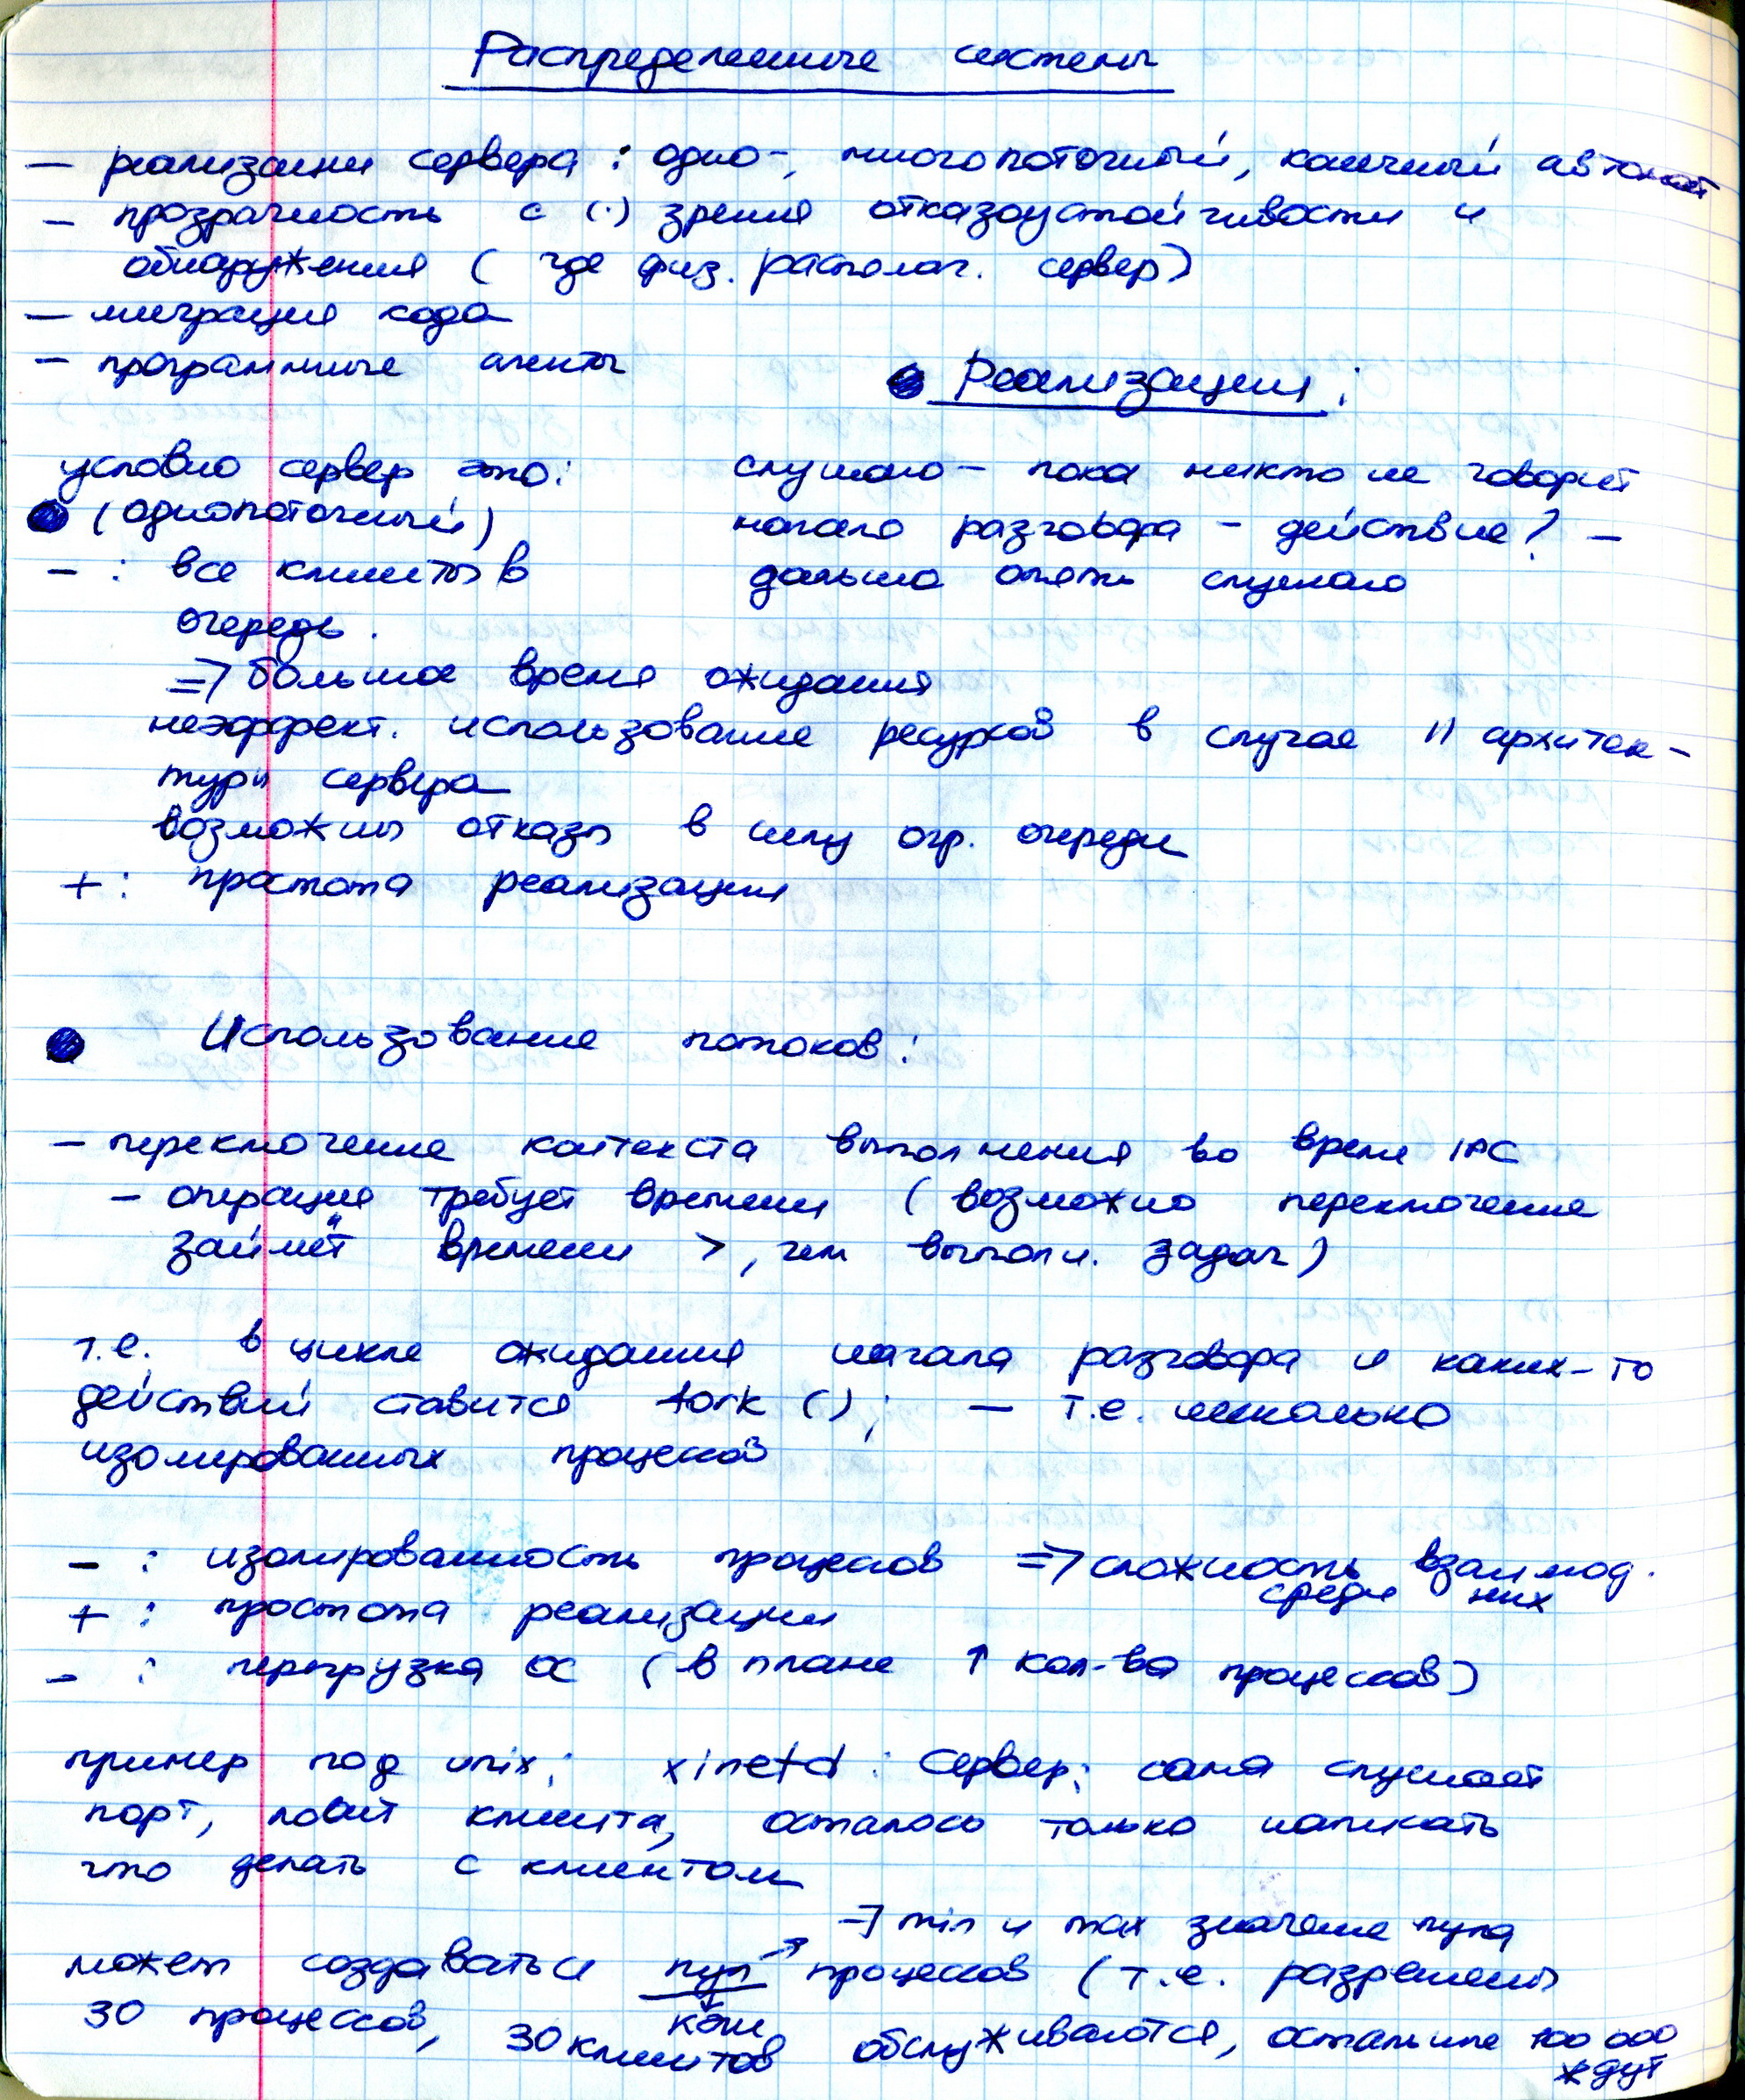 Распределенные системы
— реализации сервера: одно-, многопоточный, конечный автомат
— прозрачность с (·) зрения отказоустойчивости и
обнаружения (где физ. располаг. сервер)
— миграция кода
— программные агенты
• Реализации:
условно сервер это:
• (однопоточный)
— : все клиенты в
очередь.
слушаю — пока никто не говорит
начало разговора — действие? —
дальше опять слушаю
=> большое время ожидания
неэффект. использование ресурсов в случае || архитек-
туры сервера
возможны отказы в силу огр. очереди
+ : простота реализации
• Использование потоков:
— переключение контекста выполнения во время IPC
— операция требует времени (возможно переключение
займёт времени >, чем выполн. задач)
т.е. в цикле ожидания начала разговора и каких-то
действий ставится fork(); — т.е. несколько
изолированных процессов
— : изолированность процессов => сложность взаимод.
среди них
+ : простота реализации
— : перегрузка ОС (в плане ↑ кол-ва процессов)
пример под unix: xinetd: сервер: сама слушает
порт, ловит клиента, осталось только написать
что делать с клиентом
=> min и max значение пула
может создаваться пул процессов (т.е. разрешены
кэш
30 процессов, 30 клиентов обслуживаются, остальные 100 000
ждут